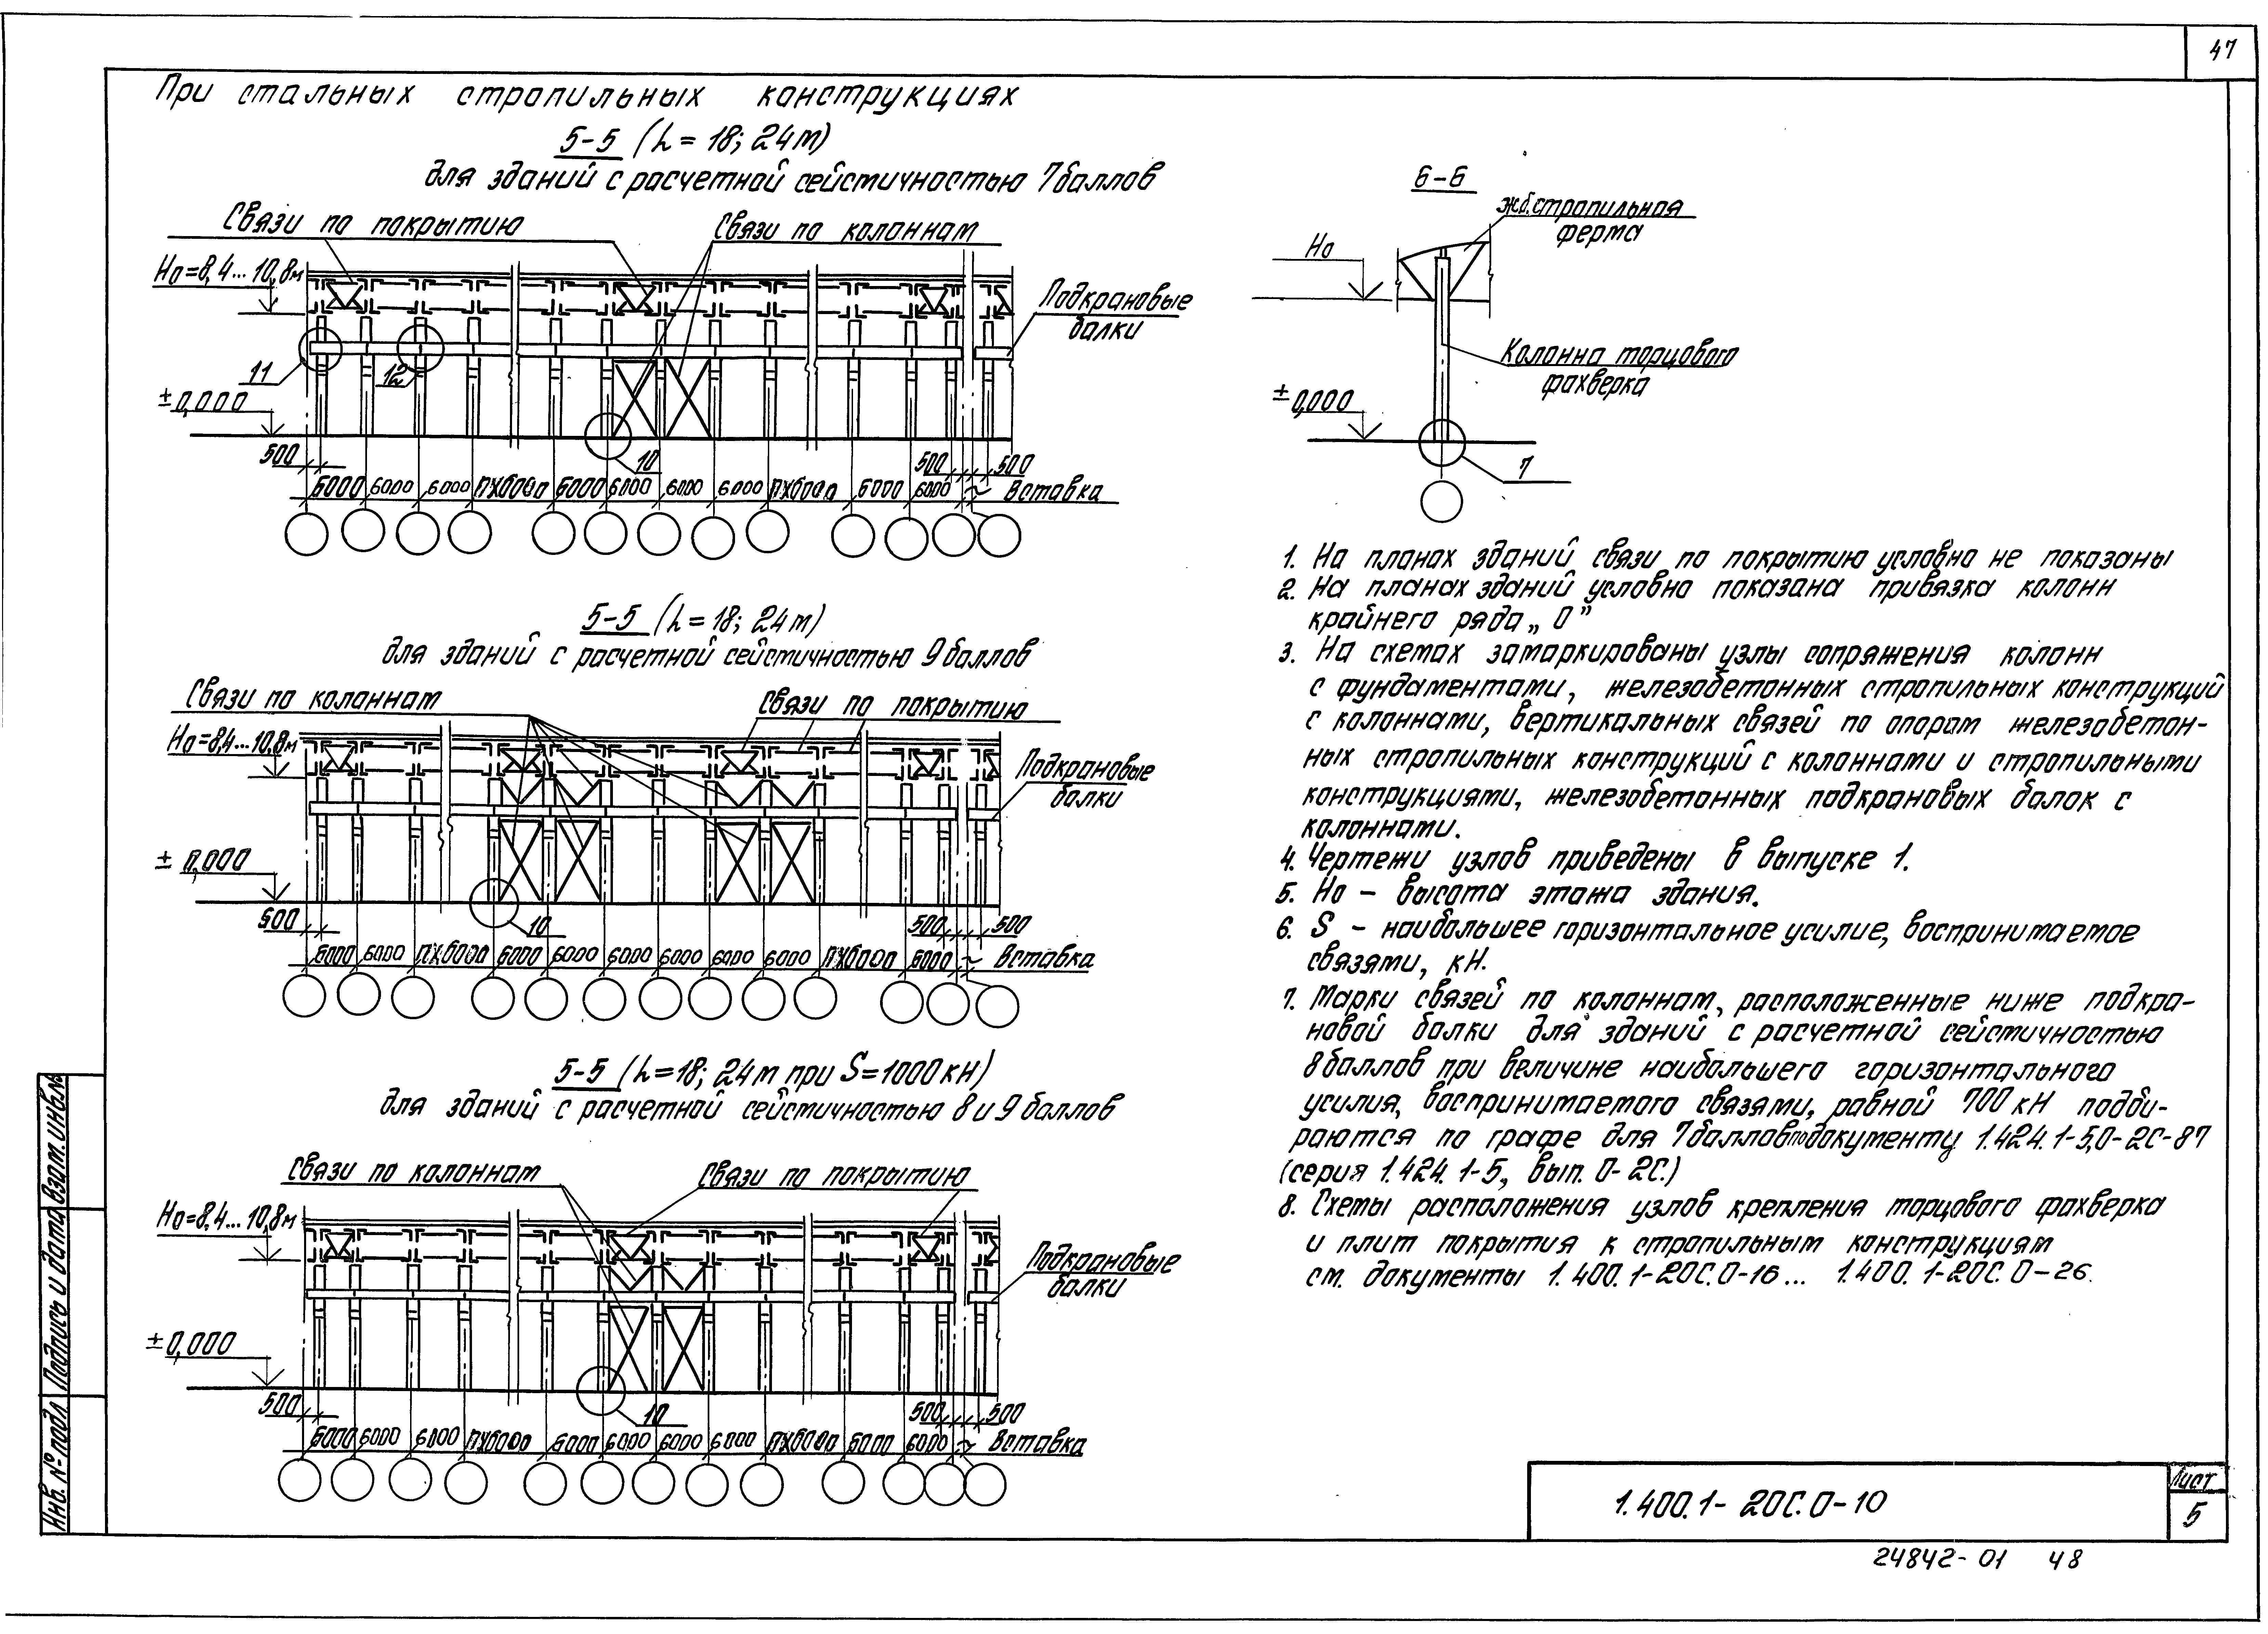 47
При стальных стропильных конструкциях
5-5 (L = 18; 24м)
для зданий с расчетной сейсмичностью 7 баллов
Связи по покрытию
Связи по колоннам
Н0=8,4... 10,8м
Подкрановые
балки
11
12
±0,000
10
500
500
500
6000 6000 6000 пх6000 6000 6000 6000 6000 пх6000 6000 6000 ~ Вставка
5-5 (L = 18; 24м)
для зданий с расчетной сейсмичностью 9 баллов
Связи по колоннам
Связи по покрытию
Н0=8,4...10,8м
Подкрановые
балки
± 0,000
10
500
500
500
6000 6000 пх6000 6000 6000 6000 6000 6000 6000 пх6000 6000 ~ Вставка
5-5 (L=18; 24м при S=1000кН)
для зданий с расчетной сейсмичностью 8 и 9 баллов
Связи по колоннам
Связи по покрытию
Н0=8,4... 10,8м
Подкрановые
балки
±0,000
10
500
500
500
6000 6000 6000 пх6000 6000 6000 6000 6000 пх6000 6000 6000 ~ Вставка
6-6
жб.стропильная
ферма
Н0
Колонна торцового
фахверка
±0,000
7
1. На планах зданий связи по покрытию условно не показаны
2. На планах зданий условно показана привязка колонн
крайнего ряда „0”
3. На схемах замаркированы узлы сопряжения колонн
с фундаментами, железобетонных стропильных конструкций
с колоннами, вертикальных связей по опорам железобетон-
ных стропильных конструкций с колоннами и стропильными
конструкциями, железобетонных подкрановых балок с
колоннами.
4. Чертежи узлов приведены в выпуске 1.
5. Н0 – высота этажа здания.
6. S – наибольшее горизонтальное усилие, воспринимаемое
связями, кН.
7. Марки связей по колоннам, расположенные ниже подкра-
новой балки для зданий с расчетной сейсмичностью
8 баллов при величине наибольшего горизонтального
усилия, воспринимаемого связями, равной 700 кН подби-
раются по графе для 7 баллов по документу 1.424.1-5,0-2С-87
(серия 1.424.1-5, вып. 0-2С.)
8. Схемы расположения узлов крепления торцового фахверка
и плит покрытия к стропильным конструкциям
см. документы 1.400.1-20С.0-16... 1.400.1-20С.0-26.
Инв. № подл Подпись и дата Взам. инв.№
1.400.1-20С.0-10
Лист
5
24842-01 48